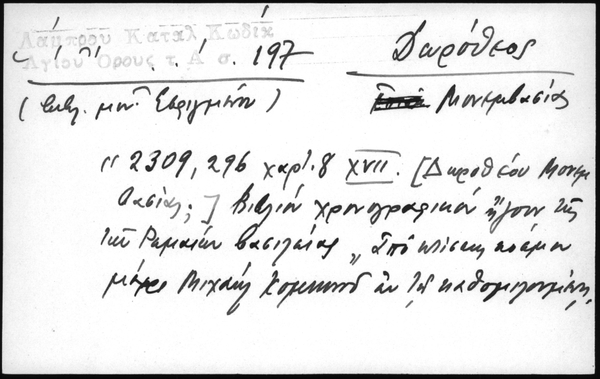 Λάμπρου Καταλ Κωδίκ
Αγίου Ὄρους τ. Α σ. 197
Δωρόθεος
(βιβλ. μον. Ἐσφιγμένου)
Μονεμβασίας
" 2309, 296 χαρτ. 8 XVII. [Δωροθέου Μονεμ
βασίας;] Βιβλίον χρονογραφικόν ἤγουν τῆς
τῶν Ρωμαίων βασιλείας „ Ἀπό κτίσεως κόσμου
μέχρι Μιχαήλ Κομνηνοῦ ἐν τῇ καθομιλουμένῃ